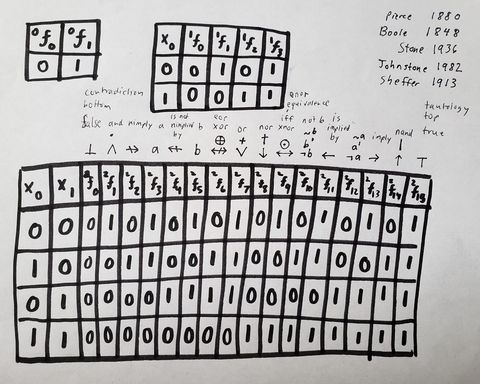 ⁰f₀ ⁰f₁
0 1
x₀ ¹f₀ ¹f₁ ¹f₂ ¹f₃
0 0 1 0 1
1 0 0 1 1
Pierce 1880
Boole 1848
Stone 1936
Johnstone 1982
Sheffer 1913
contradiction
bottom
false and nimply a is not nimplied by b eor xor or nor xnor equivalence iff not b ~b b' is implied by ~a a' imply nand
tautology
top
true
⊥ ∧ ↛ a ↚ b ⊕ ↮ + ∨ † ↓ ⊙ ↔ ¬b ← ¬a → | ↑ ⊤
x₀ x₁ ²f₀ ²f₁ ²f₂ ²f₃ ²f₄ ²f₅ ²f₆ ²f₇ ²f₈ ²f₉ ²f₁₀ ²f₁₁ ²f₁₂ ²f₁₃ ²f₁₄ ²f₁₅
0 0 0 1 0 1 0 1 0 1 0 1 0 1 0 1 0 1
1 0 0 0 1 1 0 0 1 1 0 0 1 1 0 0 1 1
0 1 0 0 0 0 1 1 1 1 0 0 0 0 1 1 1 1
1 1 0 0 0 0 0 0 0 0 1 1 1 1 1 1 1 1